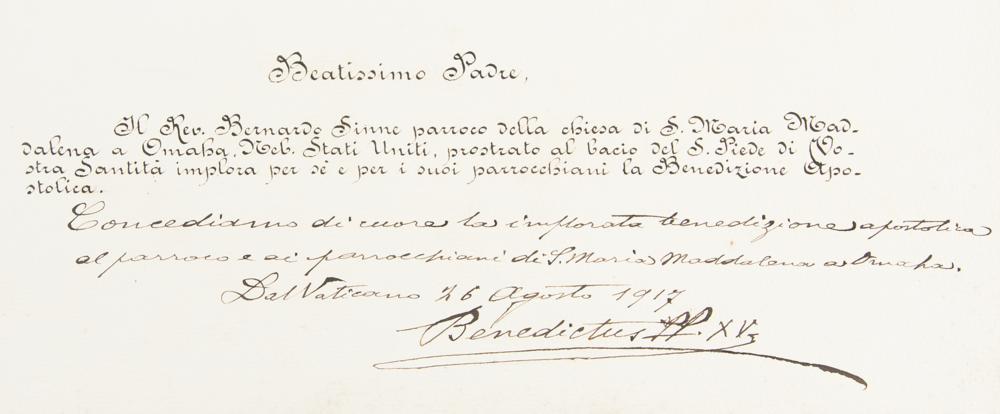 Beatissimo Padre,
Il Rev. Bernardo Sinne parroco della chiesa di S. Maria Mad-
dalena a Omaha, Neb. Stati Uniti, prostrato al bacio del S. Piede di Vo-
stra Santità implora per sè e per i suoi parrocchiani la Benedizione Apo-
stolica.
Concediamo di cuore la implorata benedizione apostolica
al parroco e ai parrocchiani di S. Maria Maddalena a Omaha.
Dal Vaticano 26 Agosto 1917
Benedictus PP. XV